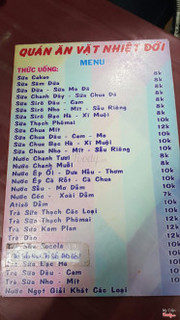 QUÁN ĂN VẶT NHIỆT ĐỚI
MENU
THỨC UỐNG:
Sữa Cakao 8k
Sữa Sâm Dứa 8k
Sữa Dừa - Sữa Mơ Đá 8k
Sữa Chanh Dây - Sữa Chua Đá
Sữa Sirô Dâu - Cam
Sữa Sirô Nho - Mít - Sầu Riêng
Sữa Sirô Bạc Hà - Xí Muội
Sữa Thạch Phômai
Sữa Chua Mít
Sữa Chua Dâu - Cam - Mơ
Sữa Chua Bạc Hà - Xí Muội
Sữa Chua Nho - Mít - Sầu Riêng
Nước Chanh Tươi
Nước Chanh Muối
Nước Ép Ổi - Dưa Hấu - Thơm 10k
Nước Ép Cà Rốt - Cà Chua 10k
Nước Sấu - Mơ Dầm
Nước Cóc - Xoài Dầm 7k
Atisô Dầm
Trà Sữa Thạch Các Loại
Trà Sữa Thạch Phômai 12k
Trà Sữa Kem Plan 12k
Trà Đào
Trà Sữa Bạc Hà
Trà Sữa Dâu - Cam
Trà Sữa Nho - Mít
Nước Ngọt Giải Khát Các Loại